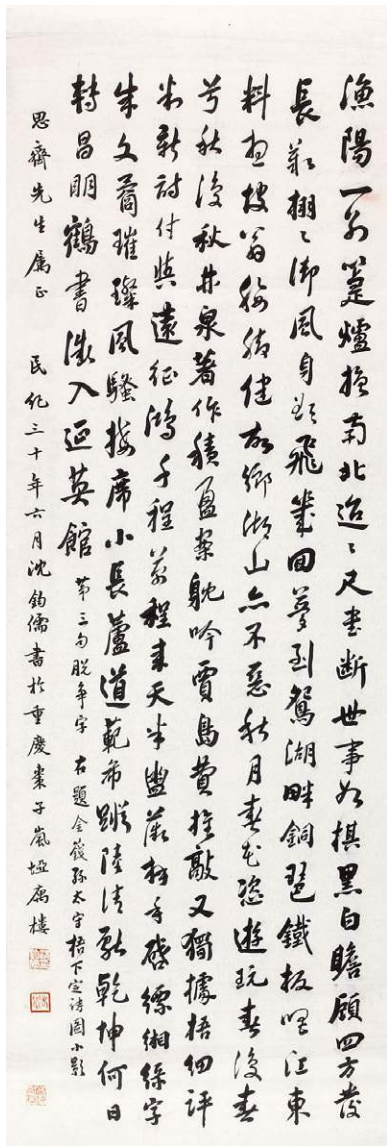 漁陽一別爐換南北迢〻尺書斷世事如棋黑白瞻顧四方發
長歎翩〻御風自欲飛幾回夢到鴛湖畔銅琶鐵板唱江東
料想坡翁腰腳健故鄉湖山亦不惡秋月春花恣遊玩春復春
兮秋復秋井泉著作積盈案耽吟賈島費推敲又獨據梧細評
判新詩付與遠征鴻千程萬程來天半盥薇捧手啓縹緗綠字
朱文喬璀璨風騷接席小長蘆道範希蹤陸清獻乾坤何日
轉昌明鶴書徵入延英館 第三句脫爭字 右題金籛孫太守梧下定詩圖小影
思齊先生屬正 民紀三十年六月沈鈞儒書於重慶棗子嵐埡寓樓